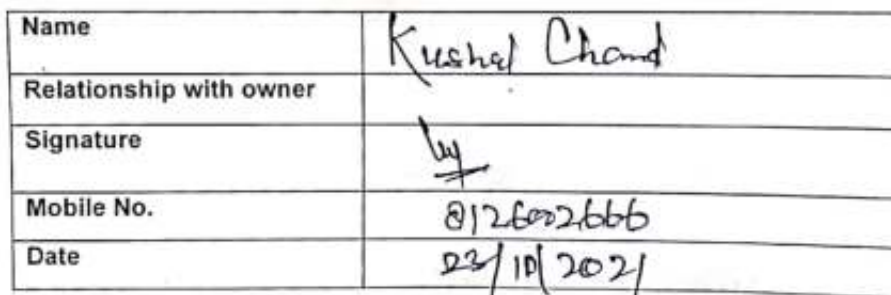 Name Kushal Chand
Relationship with owner
Signature
Mobile No. 8126002666
Date 23/10/2021